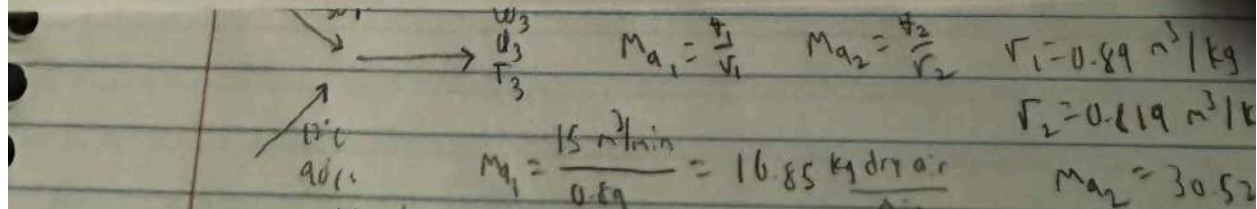 W3
φ3
T3
Ma1 = V1/v1 Ma2 = V2/v2 v1 = 0.89 m³/kg
v2 = 0.819 m³/k
12°C
90%
Ma1 = 15 m³/min / 0.89 = 16.85 kg dry air
Ma2 = 30.52